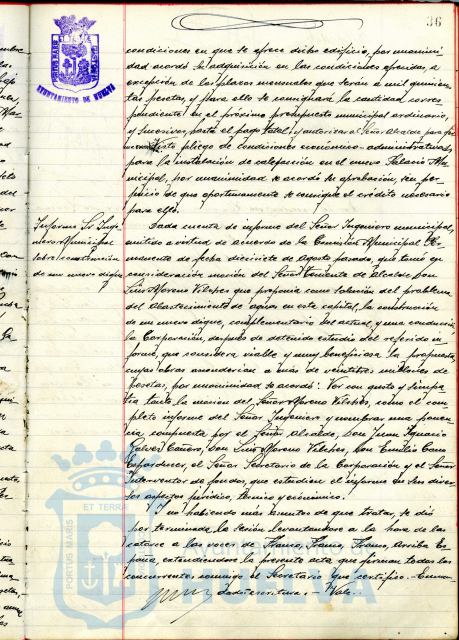 36
AYUNTAMIENTO DE HUELVA
condiciones en que se ofrece dicho edificio, por unanimi-
dad acordó su adquisición en las condiciones ofrecidas, a
excepción de los plazos mensuales que serán a mil quinien-
tas pesetas, y para ello se consignará la cantidad corres-
pondiente en el próximo presupuesto municipal ordinario,
y sucesivos, hasta el pago total, y autorizar al Señor Alcalde para
Visto pliego de condiciones económico-administrativas
para la instalación de calefacción en el nuevo Palacio Mu-
nicipal, por unanimidad se acordó su aprobación, sin per-
juicio de que oportunamente se consigne el crédito necesario
para ello.
Informe Sr. Inge-
niero Municipal
sobre construcción
de un nuevo dique
Dada cuenta de informe del Señor Ingeniero municipal,
emitido a virtud de acuerdo de la Comisión Municipal Per-
manente de fecha diecisiete de Agosto pasado, que tomó en
consideración moción del Señor Teniente de Alcalde Don
Luis Moreno Vilches que proponía como solución del problema
del abastecimiento de aguas en esta capital, la construcción
de un nuevo dique, complementario del actual, y una conducción,
la Corporación, después de detenido estudio del referido in-
forme, que considera viable y muy beneficiosa la propuesta,
cuyas obras ascenderían a más de veintitres millones de
pesetas, por unanimidad se acordó: Ver con gusto y simpa-
tía tanto la moción del Señor Moreno Vilches, como el com-
pleto informe del Señor Ingeniero y nombrar una ponen-
cia compuesta por el Señor Alcalde, Don Juan Ignacio
Gálvez Cañero, Don Luis Moreno Vilches, Don Emilio Cano
el Señor Secretario de la Corporación y el Señor
Interventor de fondos, que estudien el informe en sus diver-
sos aspectos jurídico, técnico y económico.
Y no habiendo más asuntos de que tratar, se dió
por terminada la sesión levantándose a la hora de las
catorce a las voces de Franco, Franco, Franco, Arriba Es-
paña, extendiéndose la presente acta que firman todos los
concurrentes, conmigo el Secretario que certifico.-
Vale.
PORTUS MARIS ET TERRAE
Ayuntamiento de
HUELVA